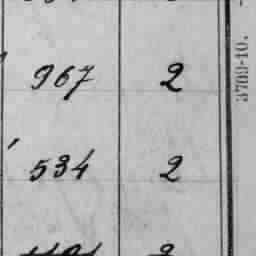 967 2
534 2
3709-10.